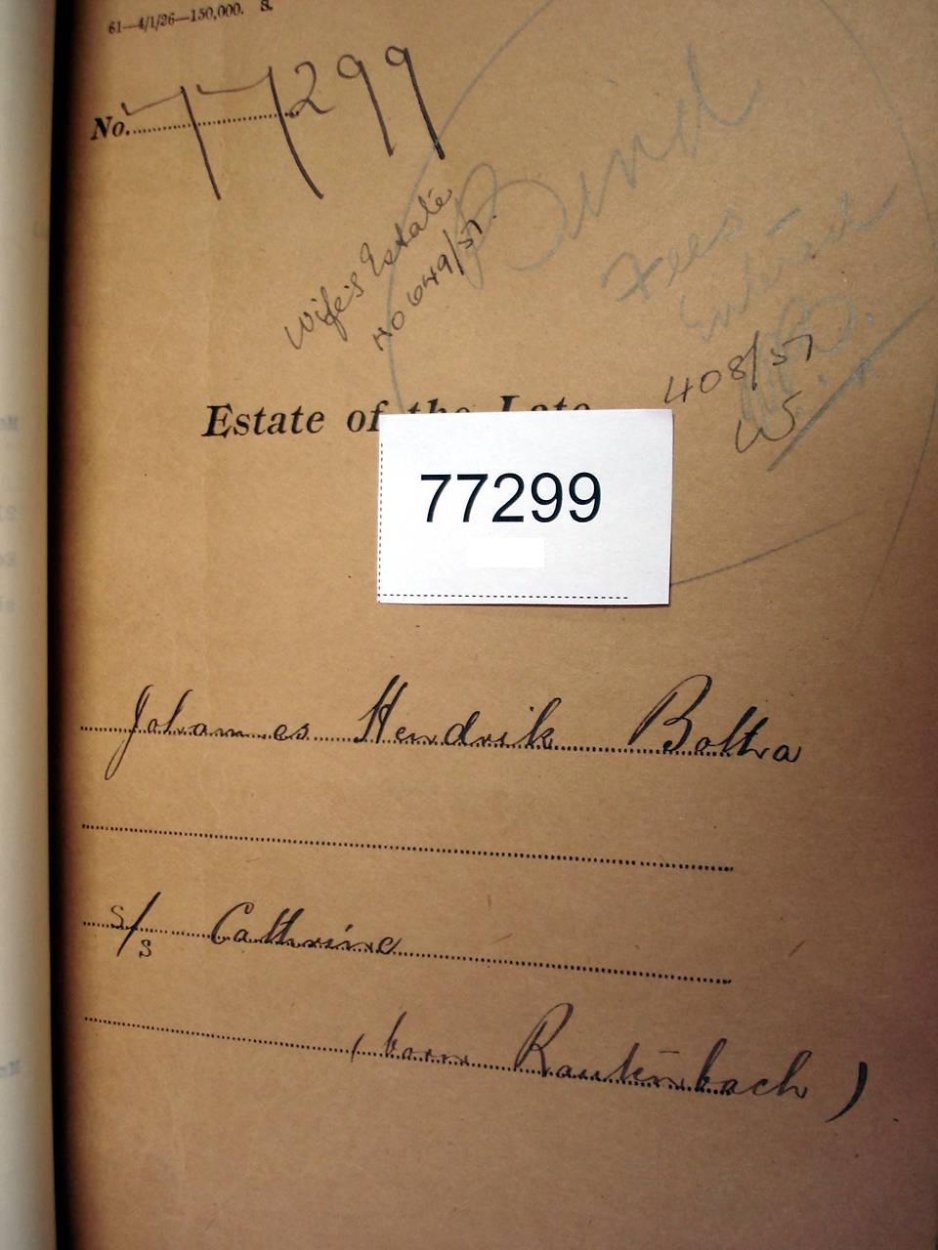 61—4/1/26—150,000. S.
No. 77299
Bind
Wife's Estate
No 649/51.
Fees
Entered
408/51
Estate of the Late
77299
Johannes Hendrik Botha
s/s Cathrine
(born Rautenbach)